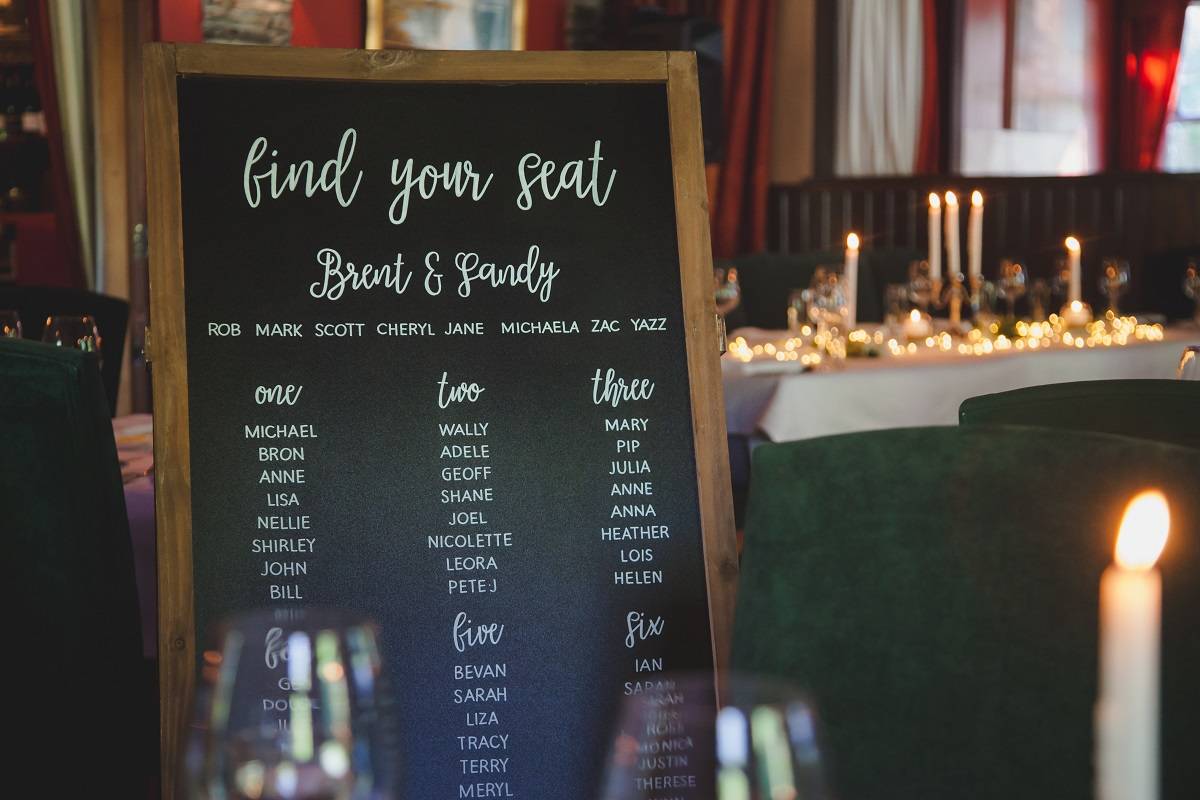 find your seat
Brent & Sandy
ROB MARK SCOTT CHERYL JANE MICHAELA ZAC YAZZ
one
MICHAEL
BRON
ANNE
LISA
NELLIE
SHIRLEY
JOHN
BILL
two
WALLY
ADELE
GEOFF
SHANE
JOEL
NICOLETTE
LEORA
PETE.J
three
MARY
PIP
JULIA
ANNE
ANNA
HEATHER
LOIS
HELEN
five
BEVAN
SARAH
LIZA
TRACY
TERRY
MERYL
six
IAN
SARAH
MONICA
JUSTIN
THERESE